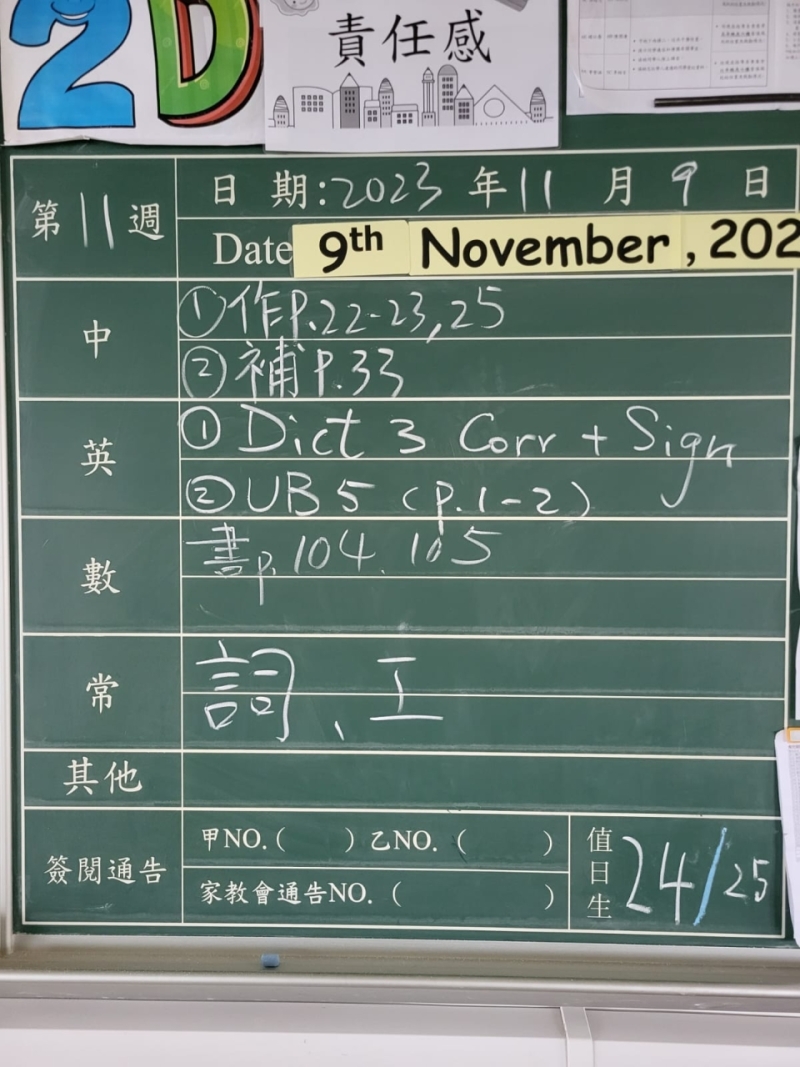 2D
責任感
第11週
日期:2023年11月9日
Date 9th November, 202
中
①作P.22-23,25
②補P.33
英
① Dict 3 Corr + Sign
② UB5 (p.1-2)
數
書p.104.105
常
詞、工
其他
簽閱通告
甲NO.( ) 乙NO. ( )
家教會通告NO. ( )
值日生
24/25